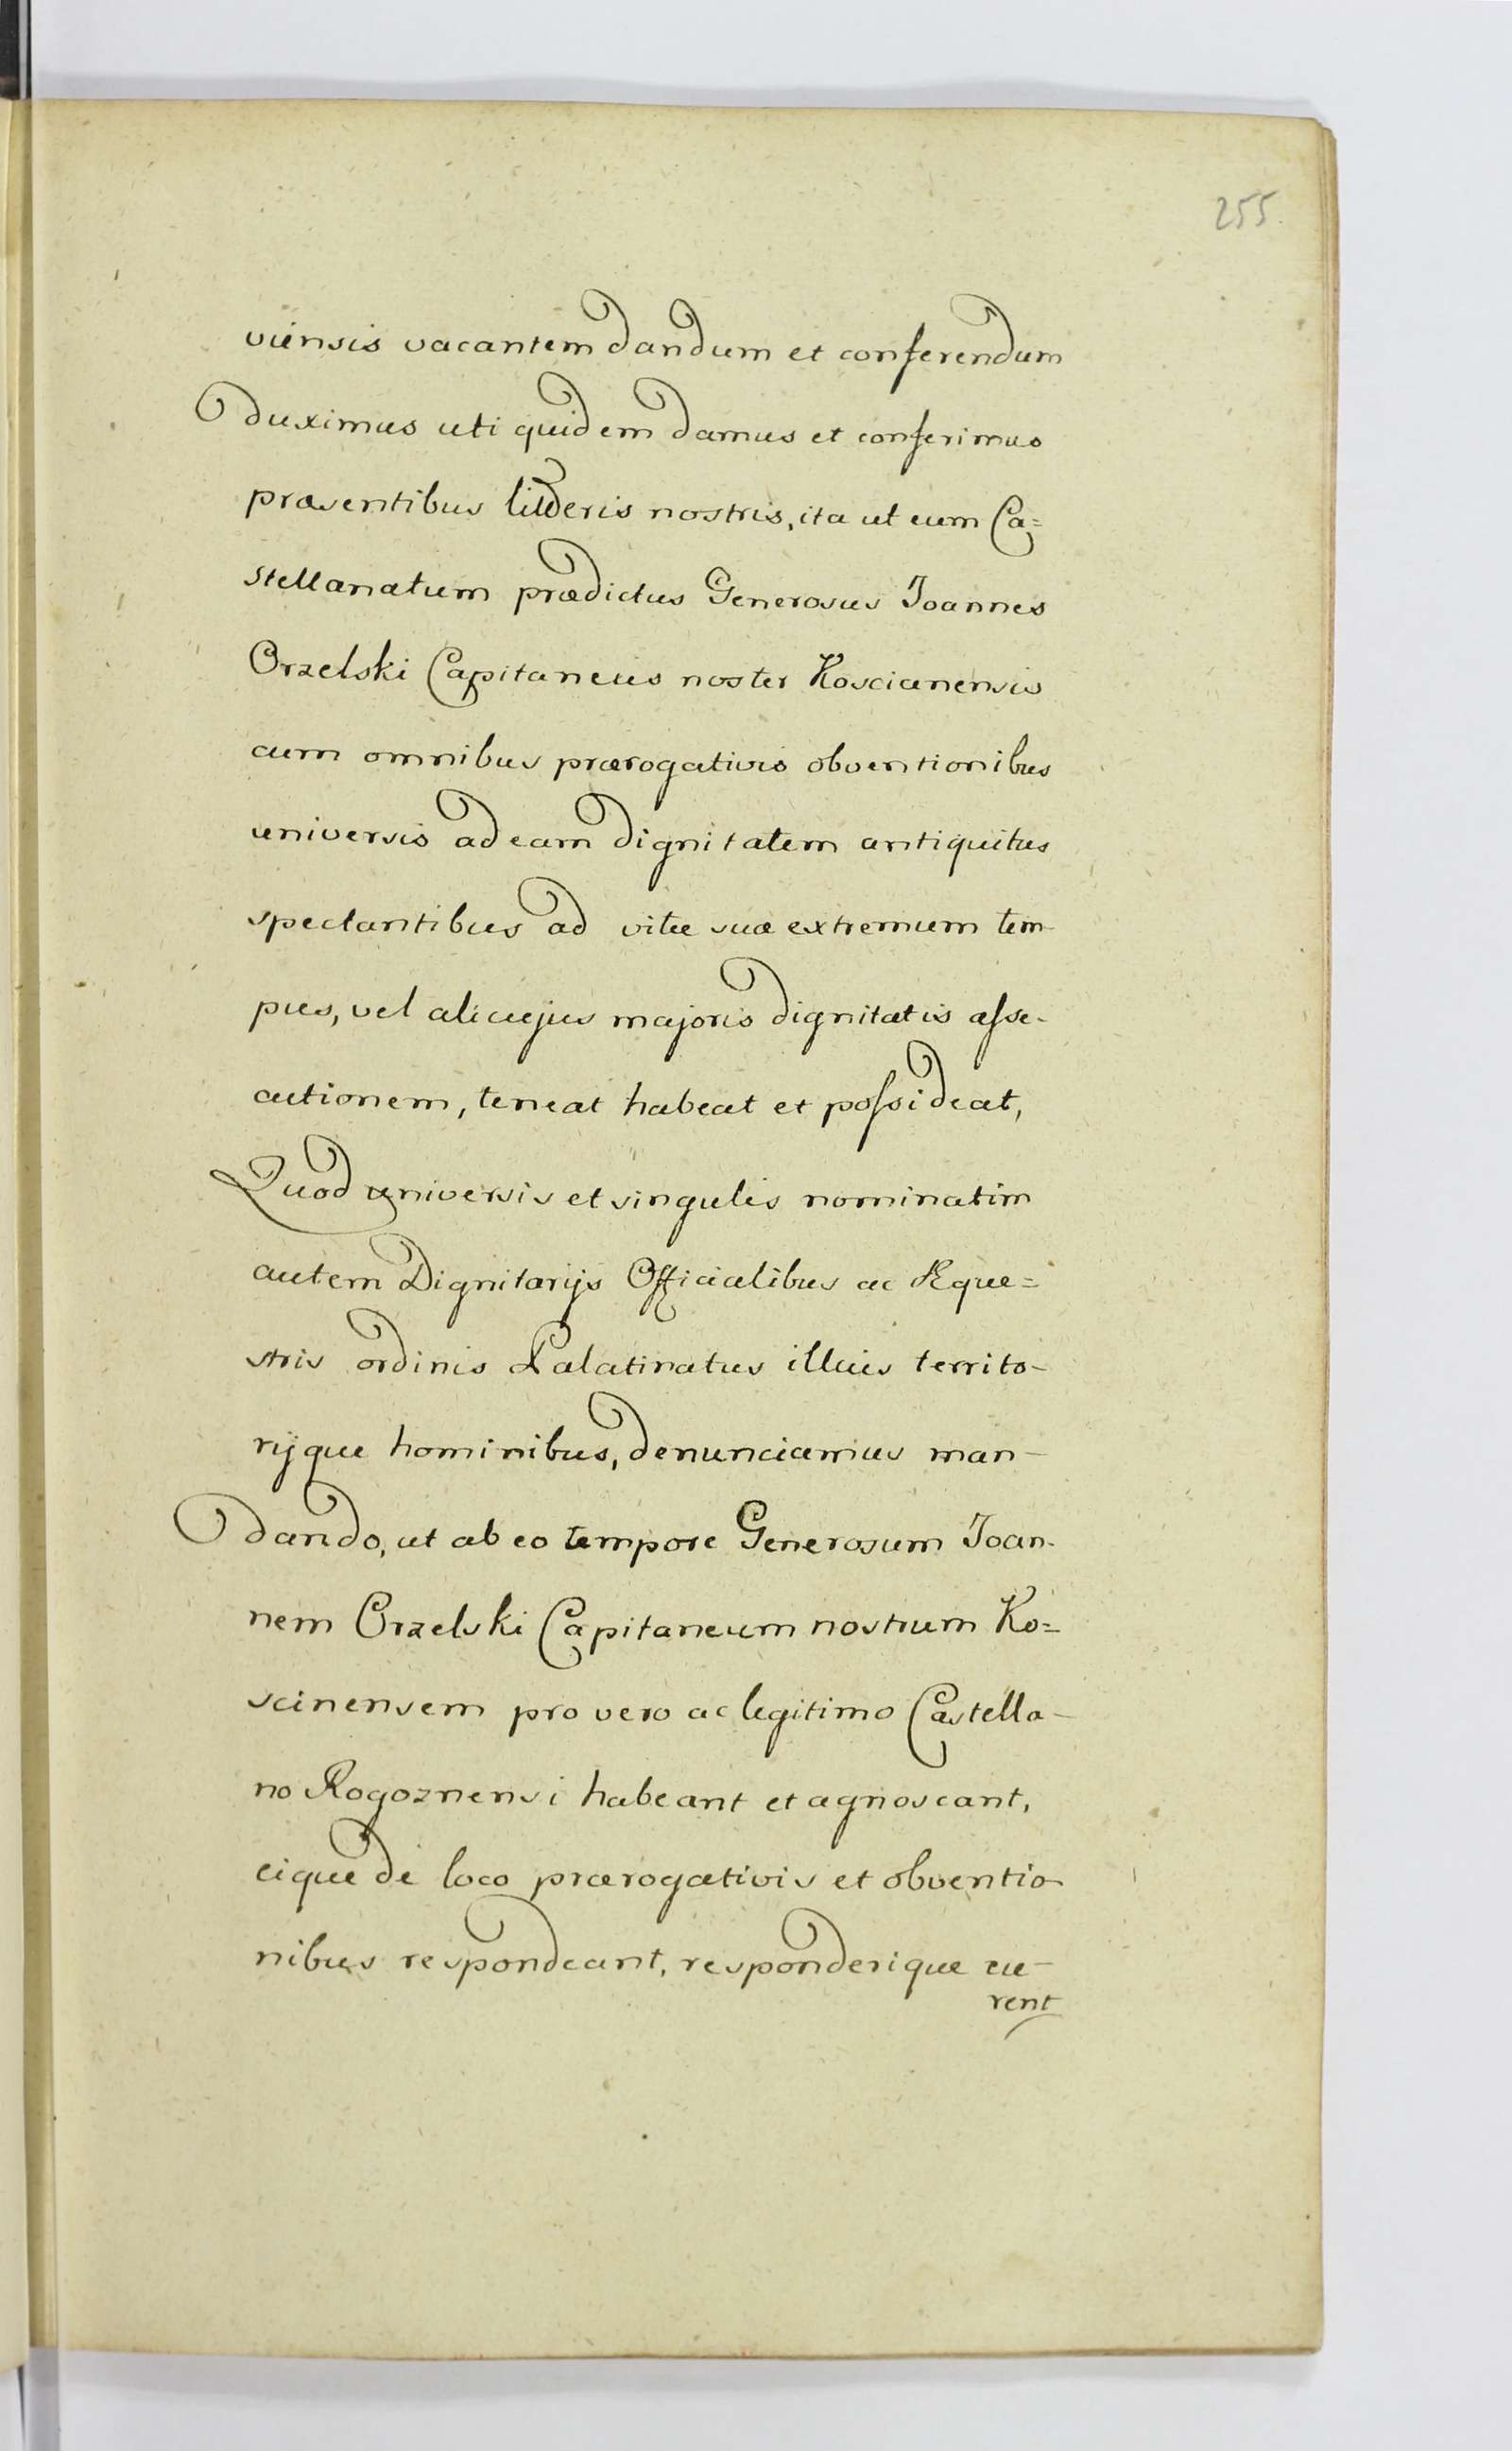 255.
viensis vacantem dandum et conferendum
duximus uti quidem damus et conferimus
præsentibus litteris nostris, ita ut eum Ca=
stellanatum prædictus Generosus Joannes
Orzelski Capitaneus noster Koscianensis
cum omnibus prærogativis obventionibus
universis ad eam dignitatem antiquitus
spectantibus ad vitæ suæ extremum tem-
pus, vel alicujus majoris dignitatis asse-
cutionem, teneat habeat et possideat,
Quod universis et singulis nominatim
autem Dignitarijs Officialibus ac Eque=
stris ordinis Palatinatus illius territo-
rijque hominibus, denunciamus man-
dando, ut ab eo tempore Generosum Joan-
nem Orzelski Capitaneum nostrum Ko=
scinensem pro vero ac legitimo Castella-
no Rogoznensi habeant et agnoscant,
eique de loco prærogativis et obventio-
nibus respondeant, responderique cu-
rent